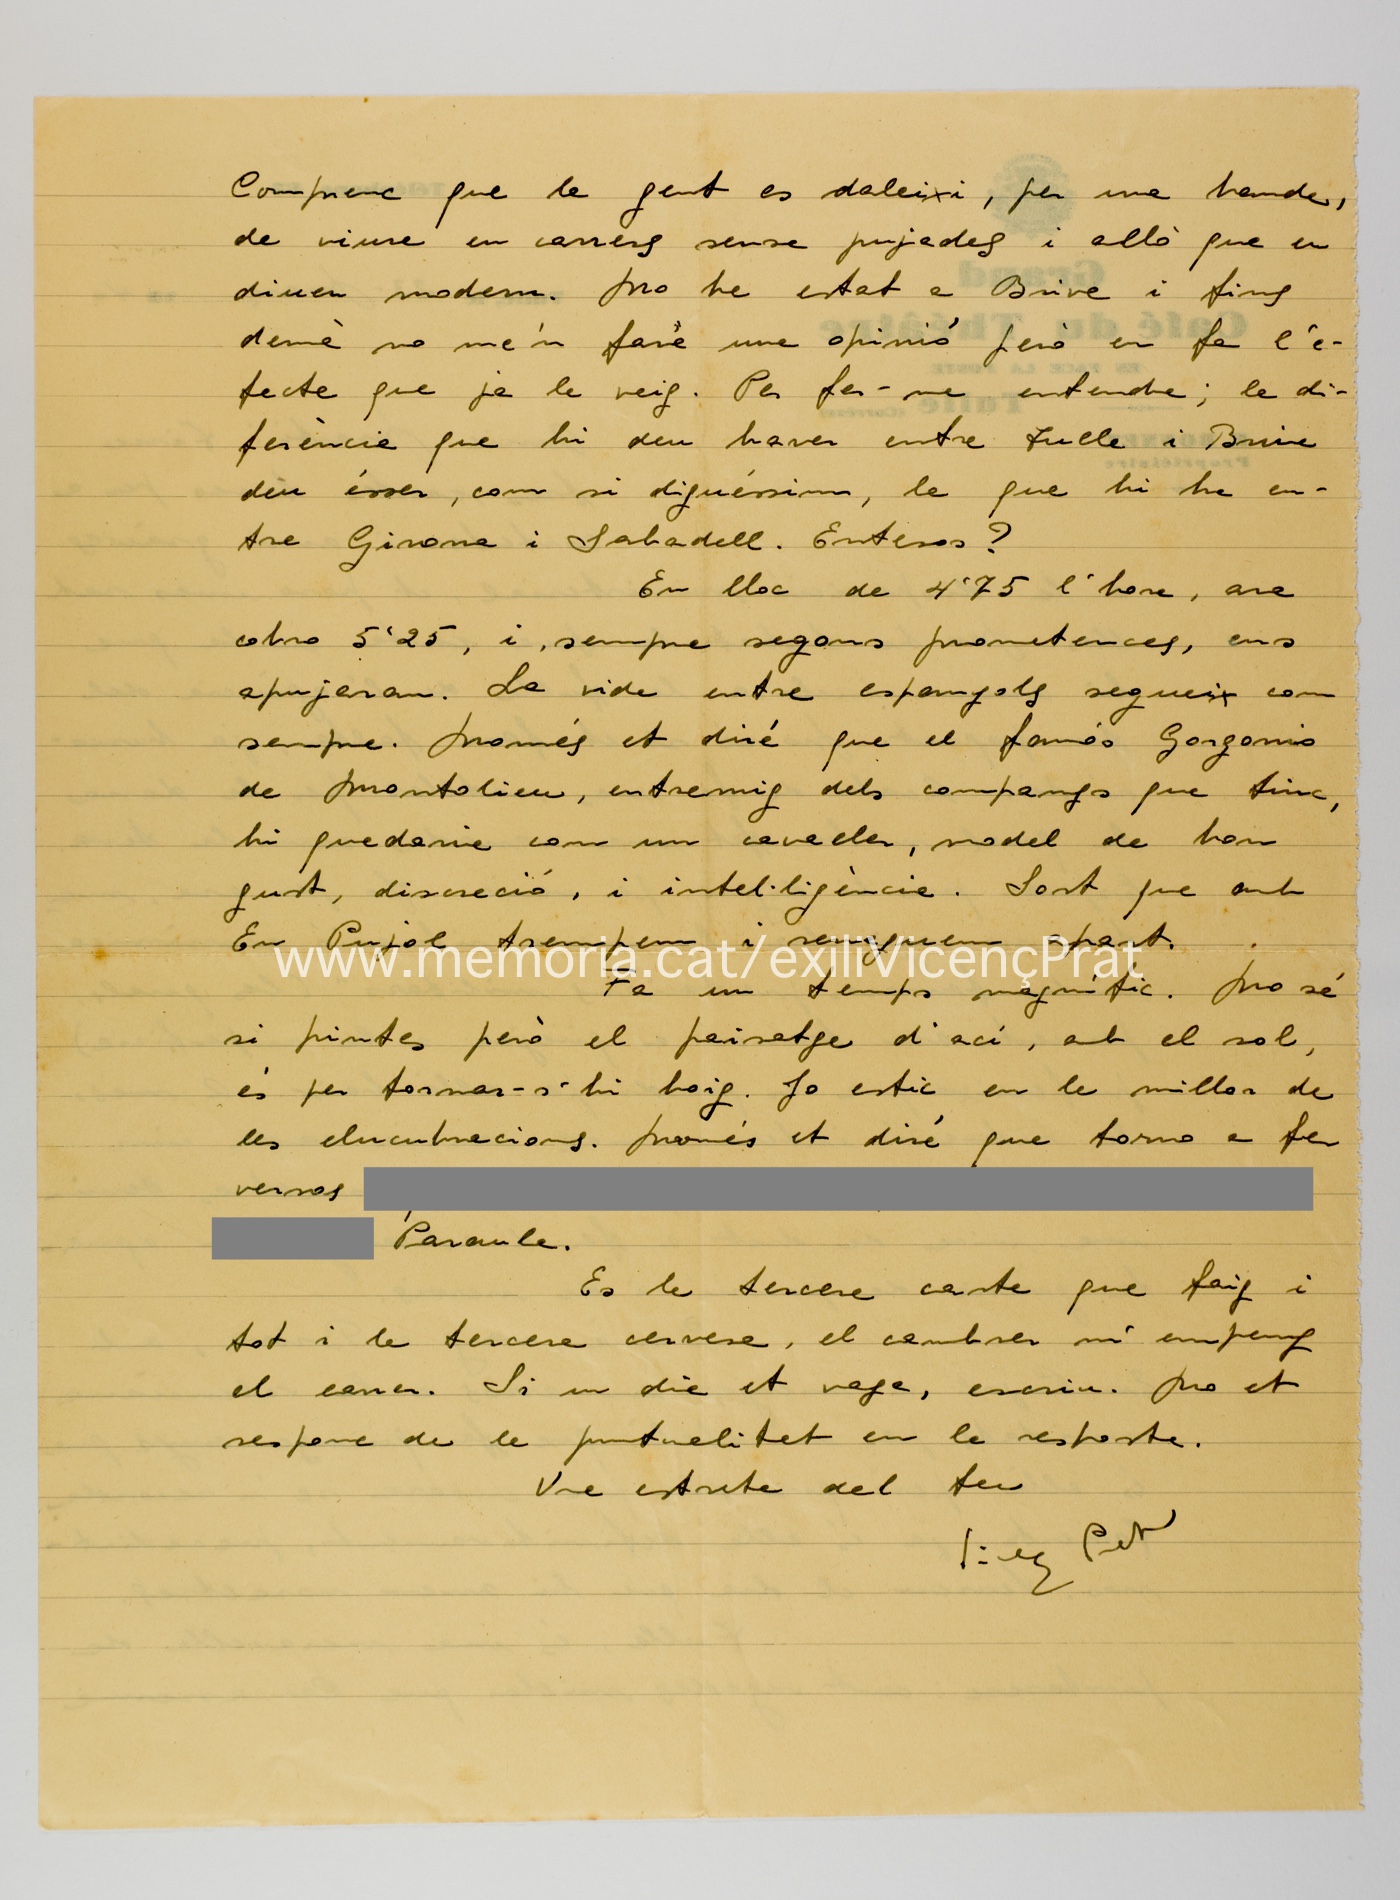 Comprenc que la gent es daleixi, per una banda,
de viure en carrers sense pujades i allò que en
diuen modern. No he estat a Brive i fins
demà no me'n faré una opinió però em fa l'e-
fecte que ja la veig. Per fer-me entendre; la di-
ferència que hi deu haver entre Tulle i Brive
deu ésser, com si diguéssim, la que hi ha en-
tre Girona i Sabadell. Entesos?
En lloc de 4'75 l'hora, ara
cobro 5'25, i, sempre segons prometences, ens
apujaran. La vida entre espanyols segueix com
sempre. Només et diré que el famós Gorgonio
de Montolieu, entremig dels companys que tinc,
hi quedaria com un cavaller, model de bon
gust, discreció, i intel·ligència. Sort que amb
En Pujol trempem i renyquem apart.
www.memoria.cat/exiliVicençPrat
Fa un temps magnífic. No sé
si pintes però el paisatge d'ací, amb el sol,
és per tornar-s'hi boig. Jo estic en la millor de
les elucubracions. Només et diré que torno a fer
versos
Paraula.
Es la tercera carta que faig i
tot i la tercera cervesa, el cambrer m'empeny
al carrer. Si un dia et vaga, escriu. No et
responc de la puntualitat en la resposta.
Una estreta del teu